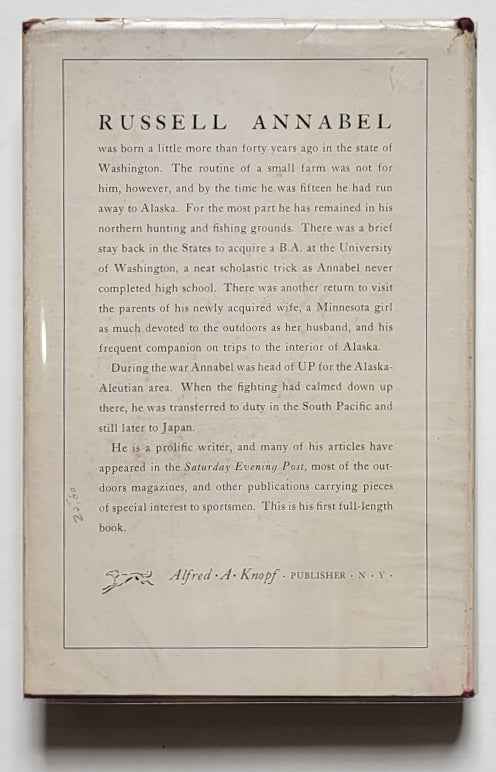 RUSSELL ANNABEL
was born a little more than forty years ago in the state of
Washington. The routine of a small farm was not for
him, however, and by the time he was fifteen he had run
away to Alaska. For the most part he has remained in his
northern hunting and fishing grounds. There was a brief
stay back in the States to acquire a B.A. at the University
of Washington, a neat scholastic trick as Annabel never
completed high school. There was another return to visit
the parents of his newly acquired wife, a Minnesota girl
as much devoted to the outdoors as her husband, and his
frequent companion on trips to the interior of Alaska.
During the war Annabel was head of UP for the Alaska-
Aleutian area. When the fighting had calmed down up
there, he was transferred to duty in the South Pacific and
still later to Japan.
He is a prolific writer, and many of his articles have
appeared in the Saturday Evening Post, most of the out-
doors magazines, and other publications carrying pieces
of special interest to sportsmen. This is his first full-length
book.
Alfred · A · Knopf · PUBLISHER · N · Y ·